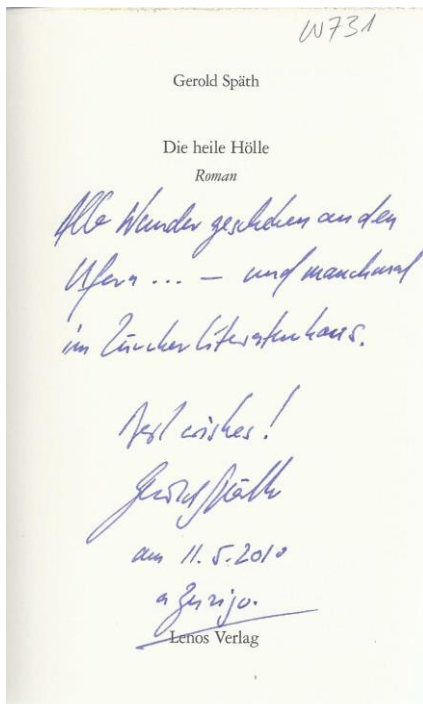 W731
Gerold Späth
Die heile Hölle
Roman
Alle Wunder geschehen an den
Ufern ... – und manchmal
im Zürcher Literaturhaus.
Best wishes!
Gerold Späth
am 11.5.2010
a Zurigo.
Lenos Verlag